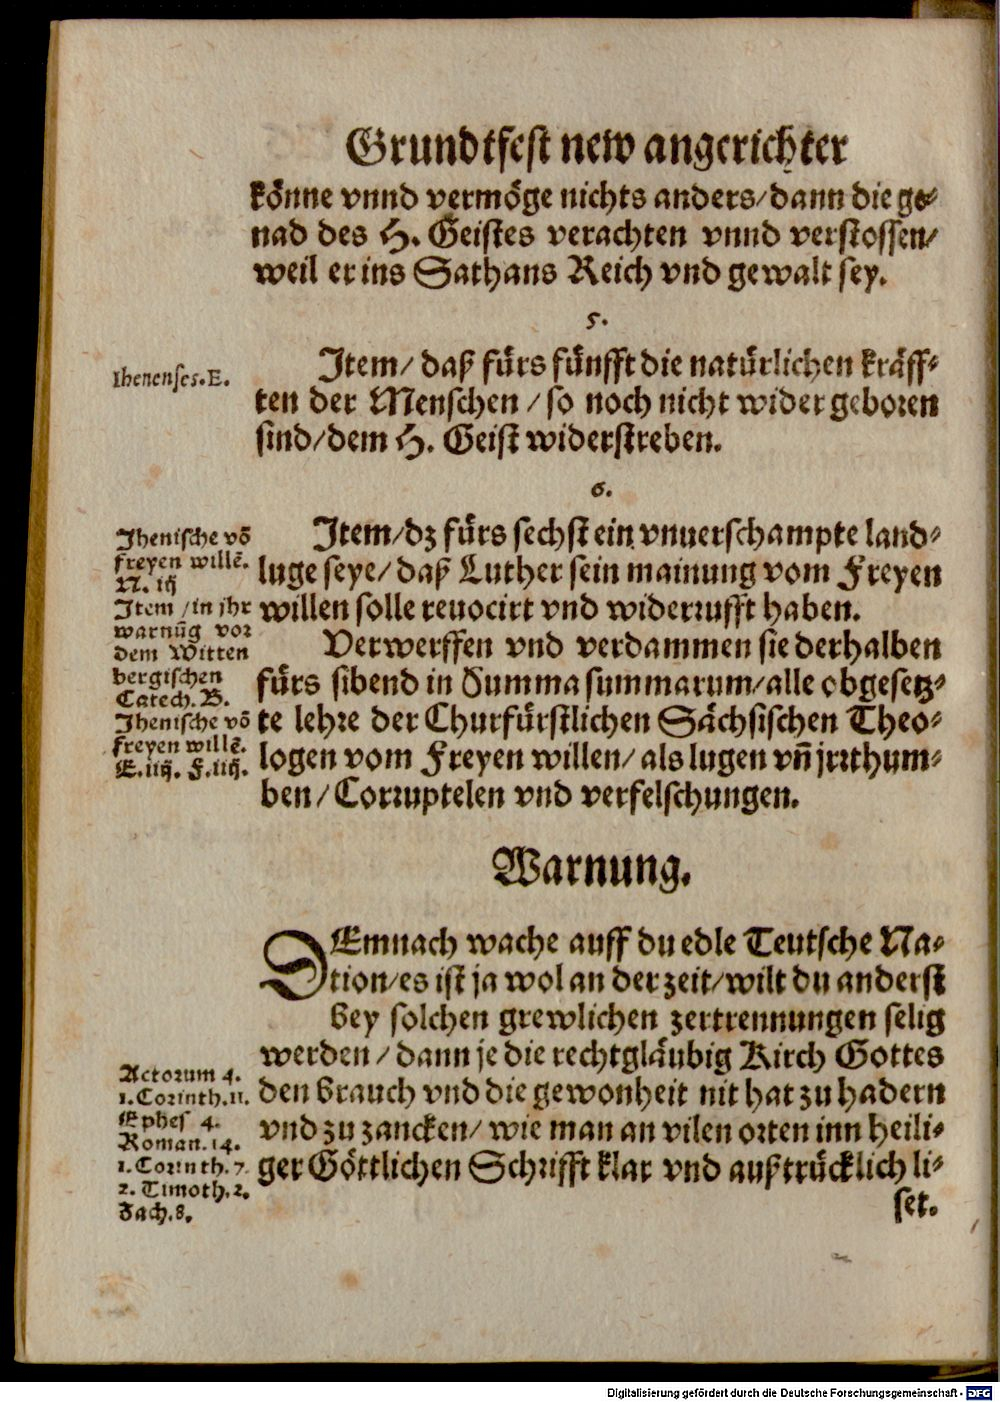 Grundtfest new angerichter
könne vnnd vermöge nichts anders/dann die ge-
nad des H. Geistes verachten vnnd verstossen/
weil er ins Sathans Reich vnd gewalt sey.
5.
Ihenenses.E.
Item/ daß fürs fünfft die natürlichen kräff-
ten der Menschen/so noch nicht wider geboren
sind/dem H. Geist widerstreben.
6.
Ihenische võ
freyen willē.
N. iij
Item/in jhr
warnũg vor
dem Witten
bergischen
Catech. B.
Ihenische võ
freyen willē.
E.iiij. F.iiij.
Item/dz fürs sechst ein vnuerschampte land-
luge seye/daß Luther sein mainung vom Freyen
willen solle reuocirt vnd widerrufft haben.
Verwerffen vnd verdammen sie derhalben
fürs sibend in Summa summarum/alle obgesetz-
te lehre der Churfürstlichen Sächsischen Theo-
logen vom Freyen willen/als lugen vñ jrrthum-
ben/Corruptelen vnd verfelschungen.
Warnung.
DEmnach wache auff du edle Teutsche Na-
tion/es ist ja wol an der zeit/wilt du anderst
bey solchen grewlichen zertrennungen selig
werden/dann je die rechtgläubig Kirch Gottes
den brauch vnd die gewonheit nit hat zu hadern
vnd zu zancken/wie man an vilen orten inn heili-
ger Göttlichen Schrifft klar vnd außtrücklich li-
set.
Actorum 4.
1.Corinth.11.
Ephes 4.
Roman.14.
1.Corinth.7.
2.Timoth.2.
Zach.8.
Digitalisierung gefördert durch die Deutsche Forschungsgemeinschaft - DFG